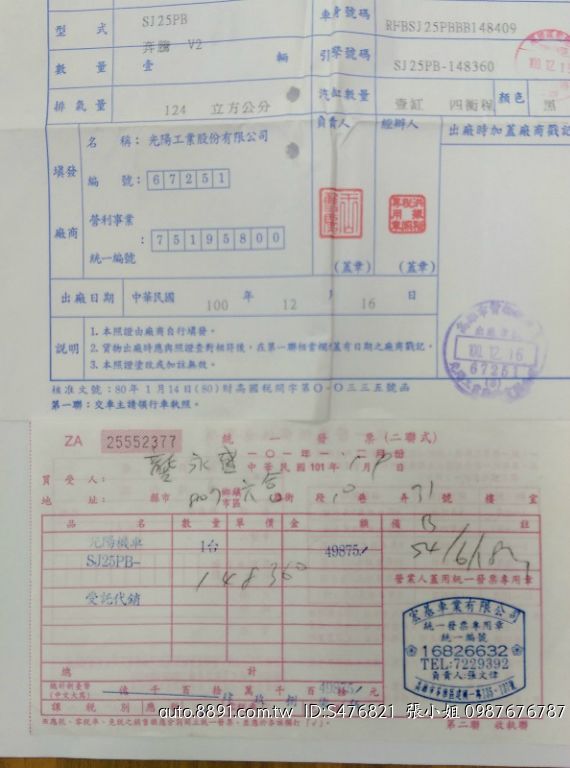 型式 SJ25PB
奔騰 V2
車身號碼 RFBSJ25PBBB148409
數量 壹 輛
引擎號碼 SJ25PB-148360
排氣量 124 立方公分
汽缸數量 壹缸 四衝程 顏色 黑
填發廠商
名稱：光陽工業股份有限公司
編號：67251
營利事業統一編號：75195800
負責人
(蓋章)
經辦人
(蓋章)
出廠時加蓋廠商戳記
出廠日期 中華民國 100 年 12 月 16 日
說明
1. 本照證由廠商自行填發。
2. 貨物出廠時應與照證查對相符後，在第一聯相當欄蓋有日期之廠商戳記。
3. 本照證塗改或加註無效。
100.12.16
67251
核准文號：80年1月14日(80)財高國稅間字第0-03335號函
第一聯：交車主請領行車執照。
ZA 25552377
統一發票(二聯式)
一○一年一、二月份
中華民國101年1月 日
買受人：
地址： 縣市 807 鄉鎮市區 六合 街 段 10 巷 弄 31 號 樓 室
品名 數量 單價 金額 備註
光陽機車 1台 49875
SJ25PB-
148360
受託代銷
營業人蓋用統一發票專用章
宏基車業有限公司
統一發票專用章
統一編號
16826632
TEL:7229392
負責人:張文偉
總計 49875
總計新臺幣
(中文大寫)
億 千 百 拾 萬 千 百 拾 元
課稅別 應
※應稅、零稅率、免稅之銷售額應分別開立統一發票，並應於各該欄打「√」。
第二聯 收執聯
auto.8891.com.tw ID:S476821 張小姐 0987676787